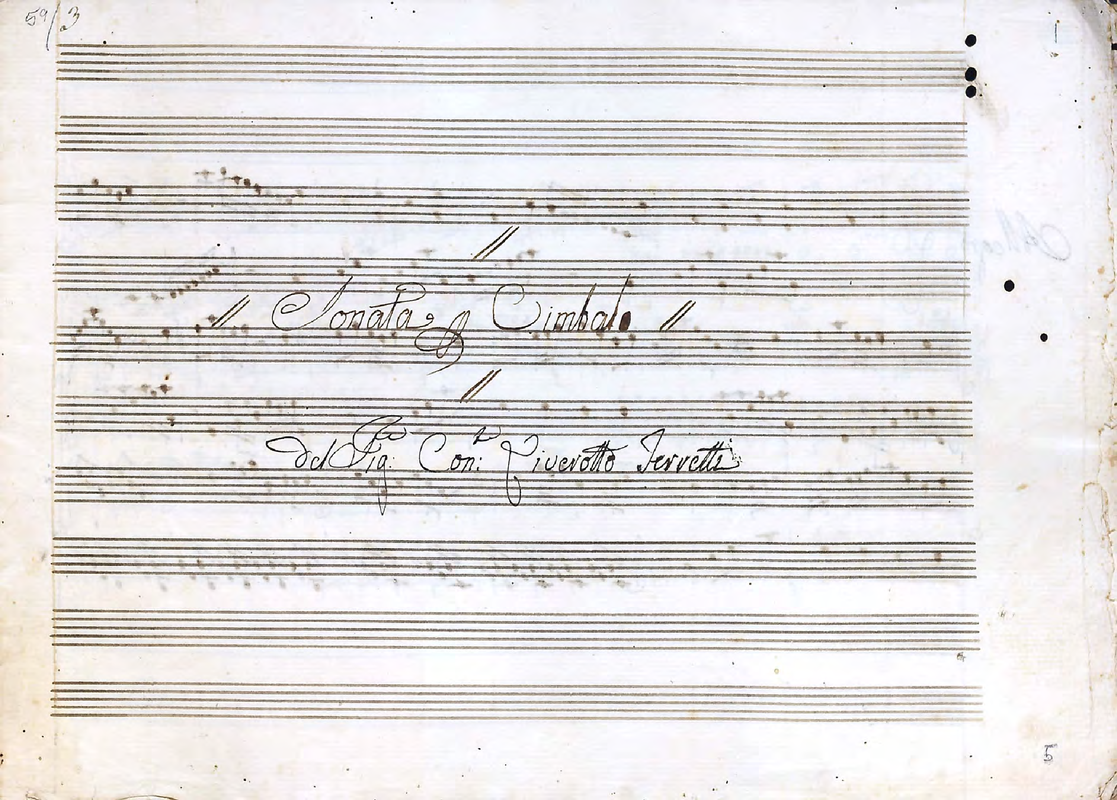 59/3
1
Sonata p Cimbalo
Del Sig:re Con:te Liverotto Ferretti
5